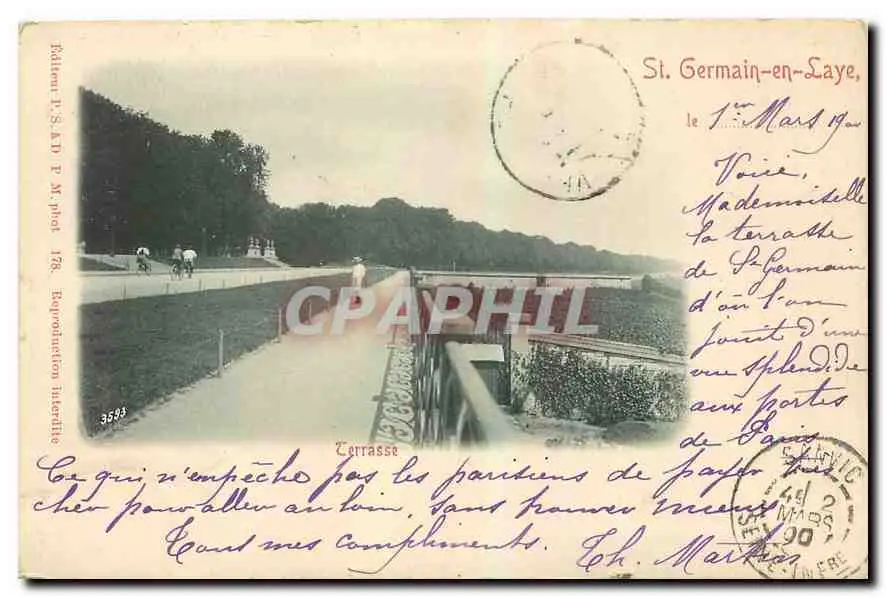 St. Germain-en-Laye,
le 1er Mars 1900
Voici,
Mademoiselle
la terrasse
de St Germain
d'où l'on
jouit d'une
vue splendide
aux portes
de Paris
Ce qui n'empêche pas les parisiens de payer très
cher pour aller au loin, sans trouver mieux
Tous mes compliments. Th.
Terrasse
3593
Editeur P.S.A.D P M. phot 178. Reproduction interdite
CPAPHIL
SANVIC
2
MARS
00